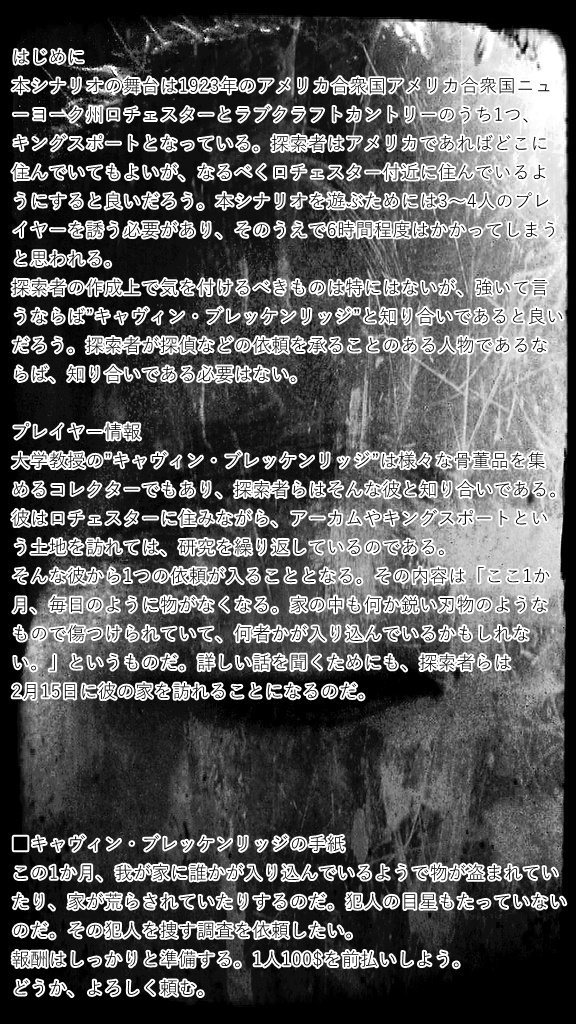 はじめに
本シナリオの舞台は1923年のアメリカ合衆国アメリカ合衆国ニュ
ーヨーク州ロチェスターとラブクラフトカントリーのうち1つ、
キングスポートとなっている。探索者はアメリカであればどこに
住んでいてもよいが、なるべくロチェスター付近に住んでいるよ
うにすると良いだろう。本シナリオを遊ぶためには3〜4人のプレ
イヤーを誘う必要があり、そのうえで6時間程度はかかってしまう
と思われる。
探索者の作成上で気を付けるべきものは特にはないが、強いて言
うならば"キャヴィン・ブレッケンリッジ"と知り合いであると良い
だろう。探索者が探偵などの依頼を承ることのある人物であるな
らば、知り合いである必要はない。
プレイヤー情報
大学教授の"キャヴィン・ブレッケンリッジ"は様々な骨董品を集
めるコレクターでもあり、探索者らはそんな彼と知り合いである。
彼はロチェスターに住みながら、アーカムやキングスポートとい
う土地を訪れては、研究を繰り返しているのである。
そんな彼から1つの依頼が入ることとなる。その内容は「ここ1か
月、毎日のように物がなくなる。家の中も何か鋭い刃物のような
もので傷つけられていて、何者かが入り込んでいるかもしれな
い。」というものだ。詳しい話を聞くためにも、探索者らは
2月15日に彼の家を訪れることになるのだ。
□キャヴィン・ブレッケンリッジの手紙
この1か月、我が家に誰かが入り込んでいるようで物が盗まれてい
たり、家が荒らされていたりするのだ。犯人の目星もたっていない
のだ。その犯人を捜す調査を依頼したい。
報酬はしっかりと準備する。1人100$を前払いしよう。
どうか、よろしく頼む。